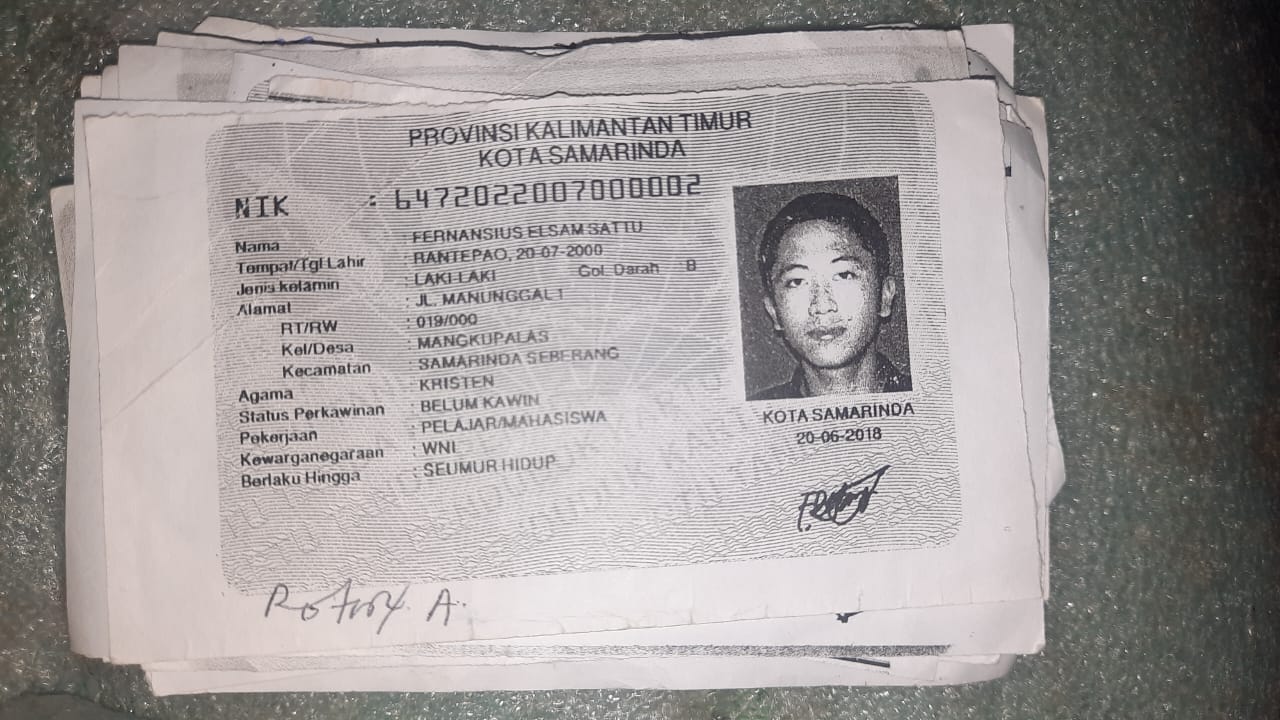 PROVINSI KALIMANTAN TIMUR
KOTA SAMARINDA
NIK : 6472022007000002
Nama : FERNANSIUS ELSAM SATTU
Tempat/Tgl Lahir : RANTEPAO, 20-07-2000
Jenis kelamin : LAKI-LAKI Gol. Darah B
Alamat : JL. MANUNGGAL 1
RT/RW : 019/000
Kel/Desa : MANGKUPALAS
Kecamatan : SAMARINDA SEBERANG
Agama : KRISTEN
Status Perkawinan : BELUM KAWIN
Pekerjaan : PELAJAR/MAHASISWA
Kewarganegaraan : WNI
Berlaku Hingga : SEUMUR HIDUP
KOTA SAMARINDA
20-06-2018
A.